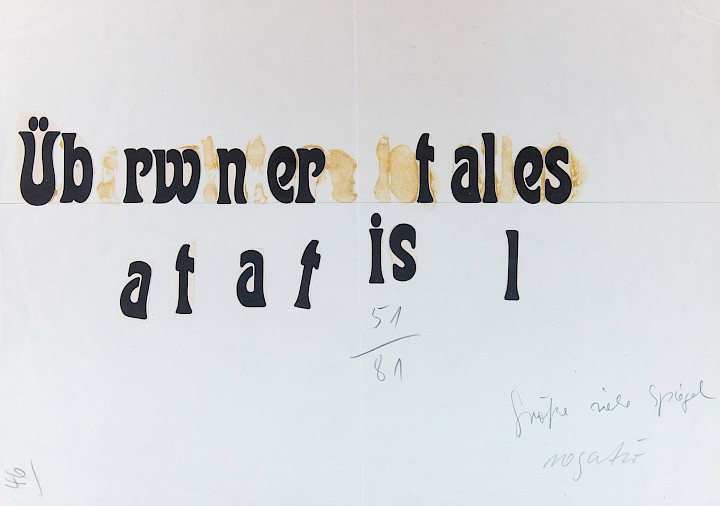 Üb rw n er t al es
a t a t is l
51
81
Größe siehe Spiegel
negativ
46